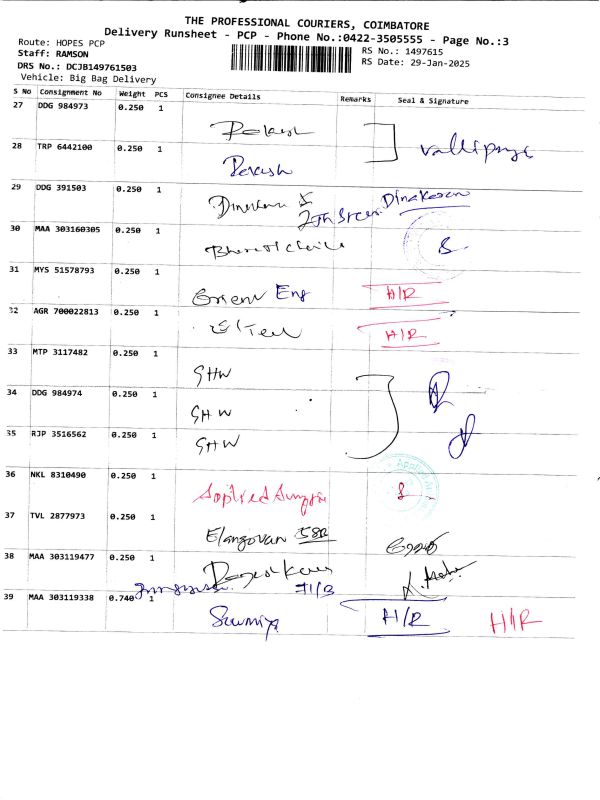 THE PROFESSIONAL COURIERS, COIMBATORE
Delivery Runsheet - PCP - Phone No.:0422-3505555 - Page No.:3
Route: HOPES PCP
RS No.: 1497615
Staff: RAMSON
RS Date: 29-Jan-2025
DRS No.: DCJB149761503
Vehicle: Big Bag Delivery
S No Consignment No Weight PCS Consignee Details Remarks Seal & Signature
27 DDG 984973 0.250 1
28 TRP 6442100 0.250 1
29 DDG 391503 0.250 1 Dinakaran
30 MAA 303160305 0.250 1
31 MYS 51578793 0.250 1 Eng H/R
32 AGR 700022813 0.250 1 H/R
33 MTP 3117482 0.250 1 SHW
34 DDG 984974 0.250 1 SHW
35 RJP 3516562 0.250 1 SHW
36 NKL 8310490 0.250 1 Applied
37 TVL 2877973 0.250 1 Elangovan
38 MAA 303119477 0.250 1
39 MAA 303119338 0.740 1 Sowmiya H/R H/R